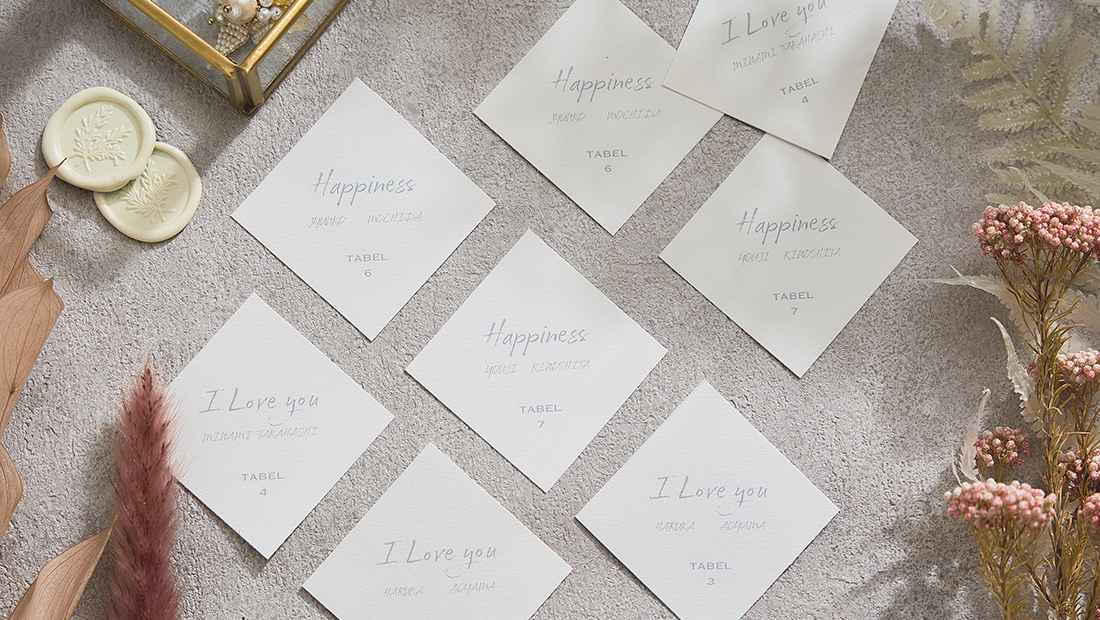 I Love you
MINAMI TAKAHASHI
TABEL
4
Happiness
JYUNKO MOCHIDA
TABEL
6
Happiness
JYUNKO MOCHIDA
TABEL
6
Happiness
YOUJI KINOSHITA
TABEL
7
Happiness
YOUJI KINOSHITA
TABEL
7
I Love you
MINAMI TAKAHASHI
TABEL
4
I Love you
HARUKA AOYAMA
TABEL
3
I Love you
HARUKA AOYAMA